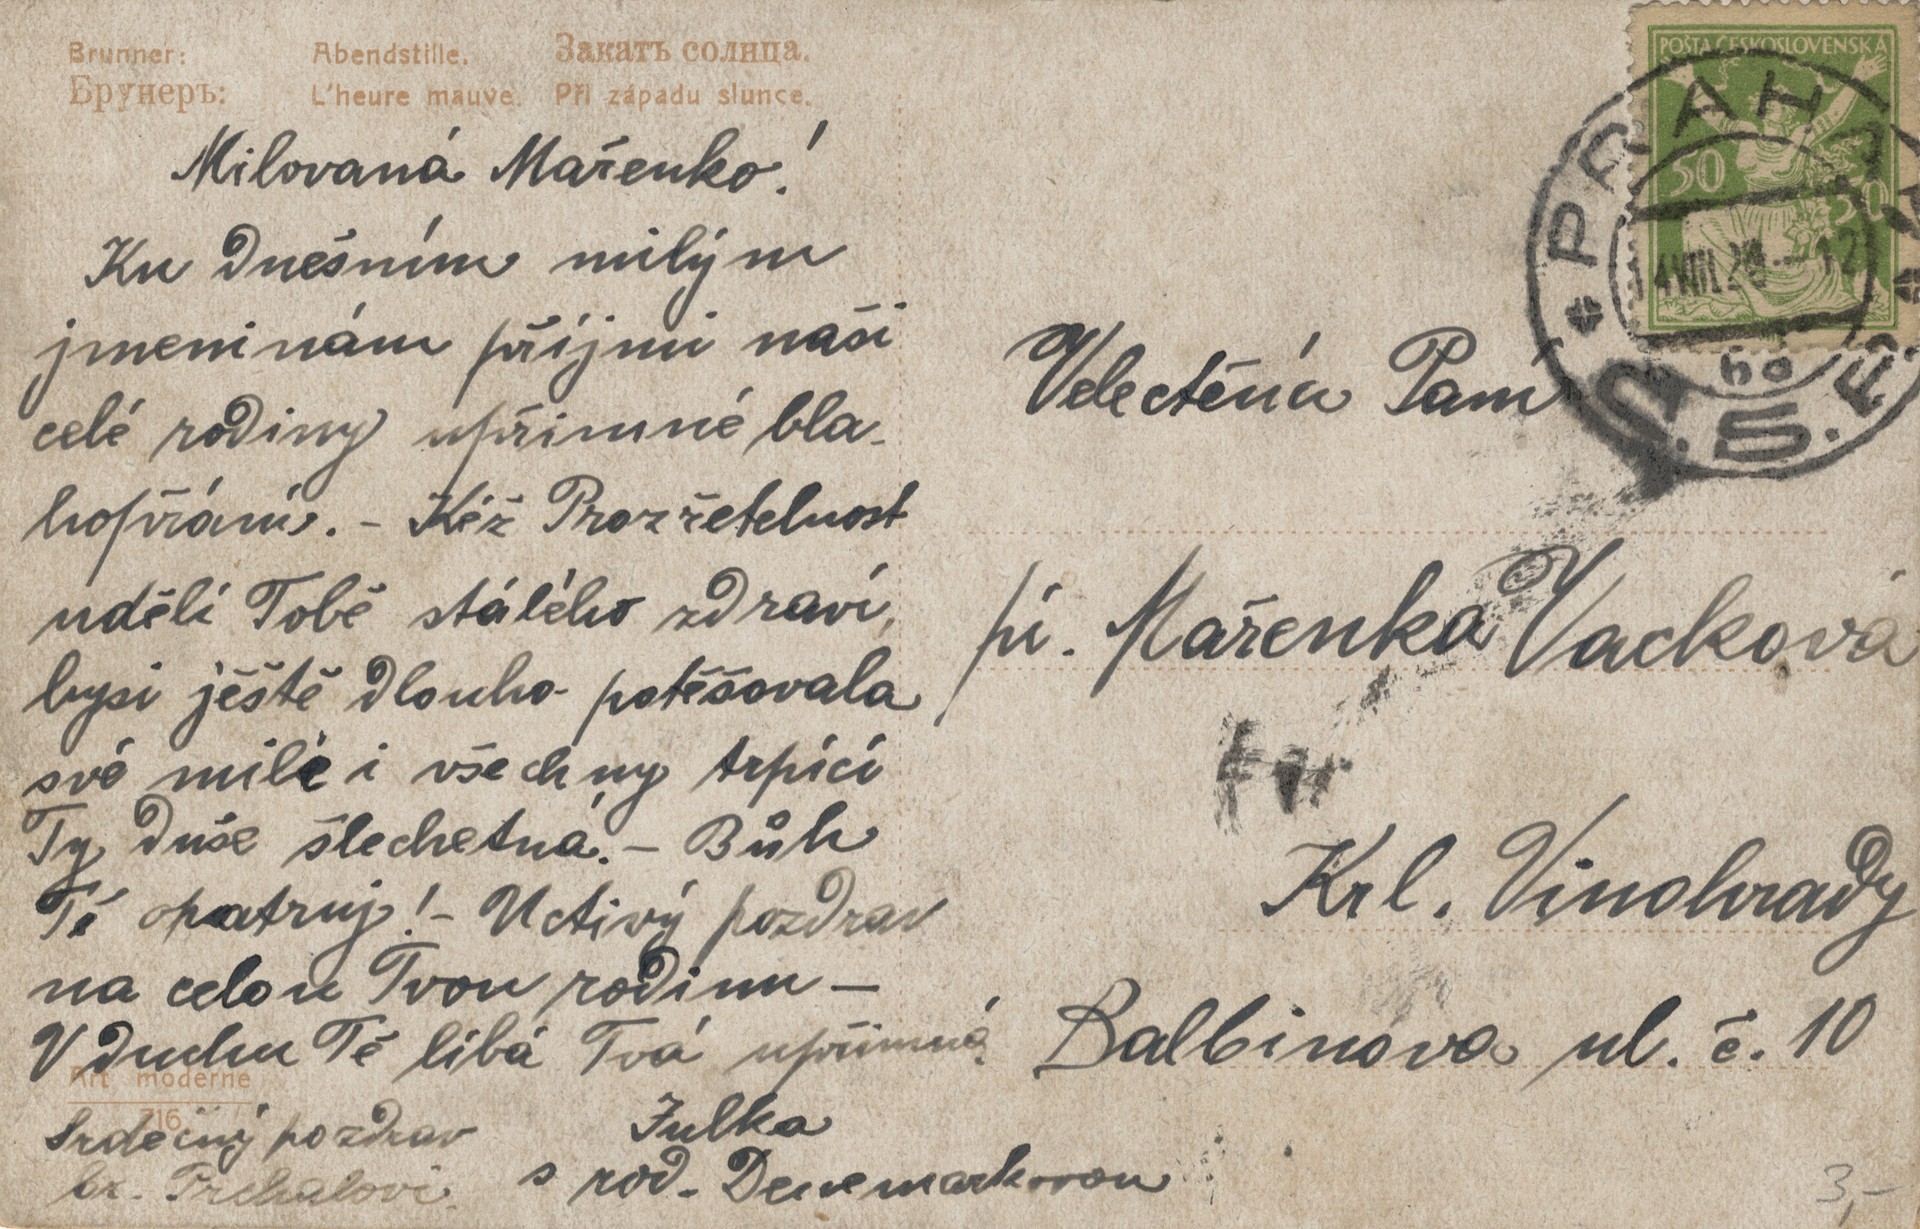 Brunner: Abendstille. Закатъ солнца.
Брунеръ: L'heure mauve. Při západu slunce.
Milovaná Mařenko!
Ku dnešním milým
jmeninám příjmi naši
celé rodiny upřimné bla-
hopřání. – Kéž Prozřetelnost
udělí Tobě stálého zdraví,
bysi ještě dlouho potěšovala
své milé i všechny trpící
Ty duše šlechetná. – Bůh
Tě opatruj! – Uctivý pozdrav
na celou Tvou rodinu –
V duchu Tě líbá Tvá upřimná
Julka
s rod. Denemarkovou
Srdečný pozdrav
Art moderne
716
POŠTA ČESKOSLOVENSKÁ
50 50
PRAHA
Velectěná Paní
pí. Mařenka Vacková
Krl. Vinohrady
Balbinova ul. č. 10
3,-